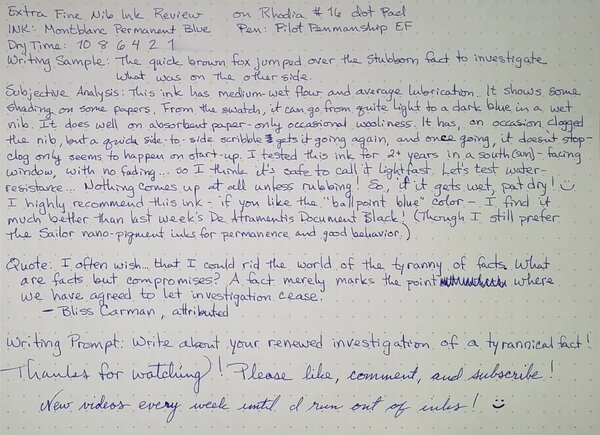 Extra Fine Nib Ink Review on Rhodia #16 dot Pad
INK: Montblanc Permanent Blue Pen: Pilot Penmanship EF
Dry Time: 10 8 6 4 2 1
Writing Sample: The quick brown fox jumped over the stubborn fact to investigate
what was on the other side.
Subjective Analysis: This ink has medium-wet flow and average lubrication. It shows some
shading on some papers. From the swatch, it can go from quite light to a dark blue in a wet
nib. It does well on absorbent paper - only occasional wooliness. It has, on occasion clogged
the nib, but a quick side-to-side scribble gets it going again, and once going, it doesn't stop-
clog only seems to happen on start-up. I tested this ink for 2+ years in a south (sun)-facing
window, with no fading... so I think it's safe to call it lightfast. Let's test water-
resistance... Nothing comes up at all unless rubbing! So, if it gets wet, pat dry! ☺
I highly recommend this ink - if you like the "ballpoint blue" color - I find it
much better than last week's De Atramentis Document Black! (Though I still prefer
the Sailor nano-pigment inks for permanence and good behavior.)
Quote: I often wish... that I could rid the world of the tyranny of facts. What
are facts but compromises? A fact merely marks the point where
we have agreed to let investigation cease.
- Bliss Carman, attributed
Writing Prompt: Write about your renewed investigation of a tyrannical fact!
Thanks for watching! Please like, comment, and subscribe!
New videos every week until I run out of inks! ☺